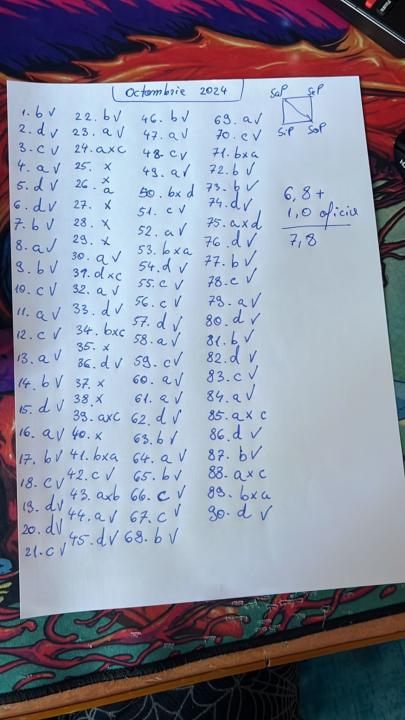 Octombrie 2024
1. b √
2. d √
3. c √
4. a √
5. d √
6. d √
7. b √
8. a √
9. b √
10. c √
11. a √
12. c √
13. a √
14. b √
15. d √
16. a √
17. b √
18. c √
19. d √
20. d √
21. c √
22. b √
23. a √
24. a x c
25. x
26. a
27. x
28. x
29. x
30. a √
31. d x c
32. a √
33. d √
34. b x c
35. x
36. d √
37. x
38. x
39. a x c
40. x
41. b x a
42. c √
43. a x b
44. a √
45. d √
46. b √
47. a √
48. c √
49. a √
50. b x d
51. c √
52. a √
53. b x a
54. d √
55. c √
56. c √
57. d √
58. a √
59. c √
60. a √
61. a √
62. d √
63. b √
64. a √
65. b √
66. c √
67. c √
68. b √
69. a √
70. c √
71. b x a
72. b √
73. b √
74. d √
75. a x d
76. d √
77. b √
78. c √
79. a √
80. d √
81. b √
82. d √
83. c √
84. a √
85. a x c
86. d √
87. b √
88. a x c
89. b x a
90. d √
SaP SeP
SiP SoP
6,8 +
1,0 oficiu
7,8